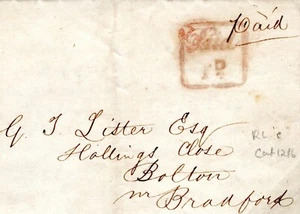 Paid
1D
G. J. Lister Esq
Hollings Close
Bolton
nr Bradford
RL.'s
Cat 12/6